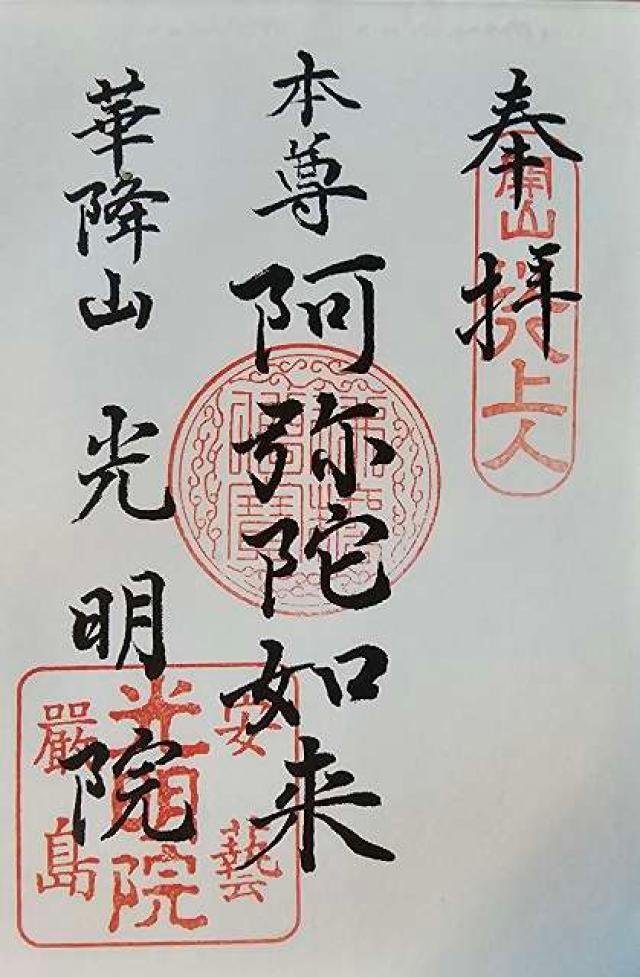 奉拝
開山
上人
本尊 阿弥陀如来
華降山 光明院
安藝
光明院
嚴島